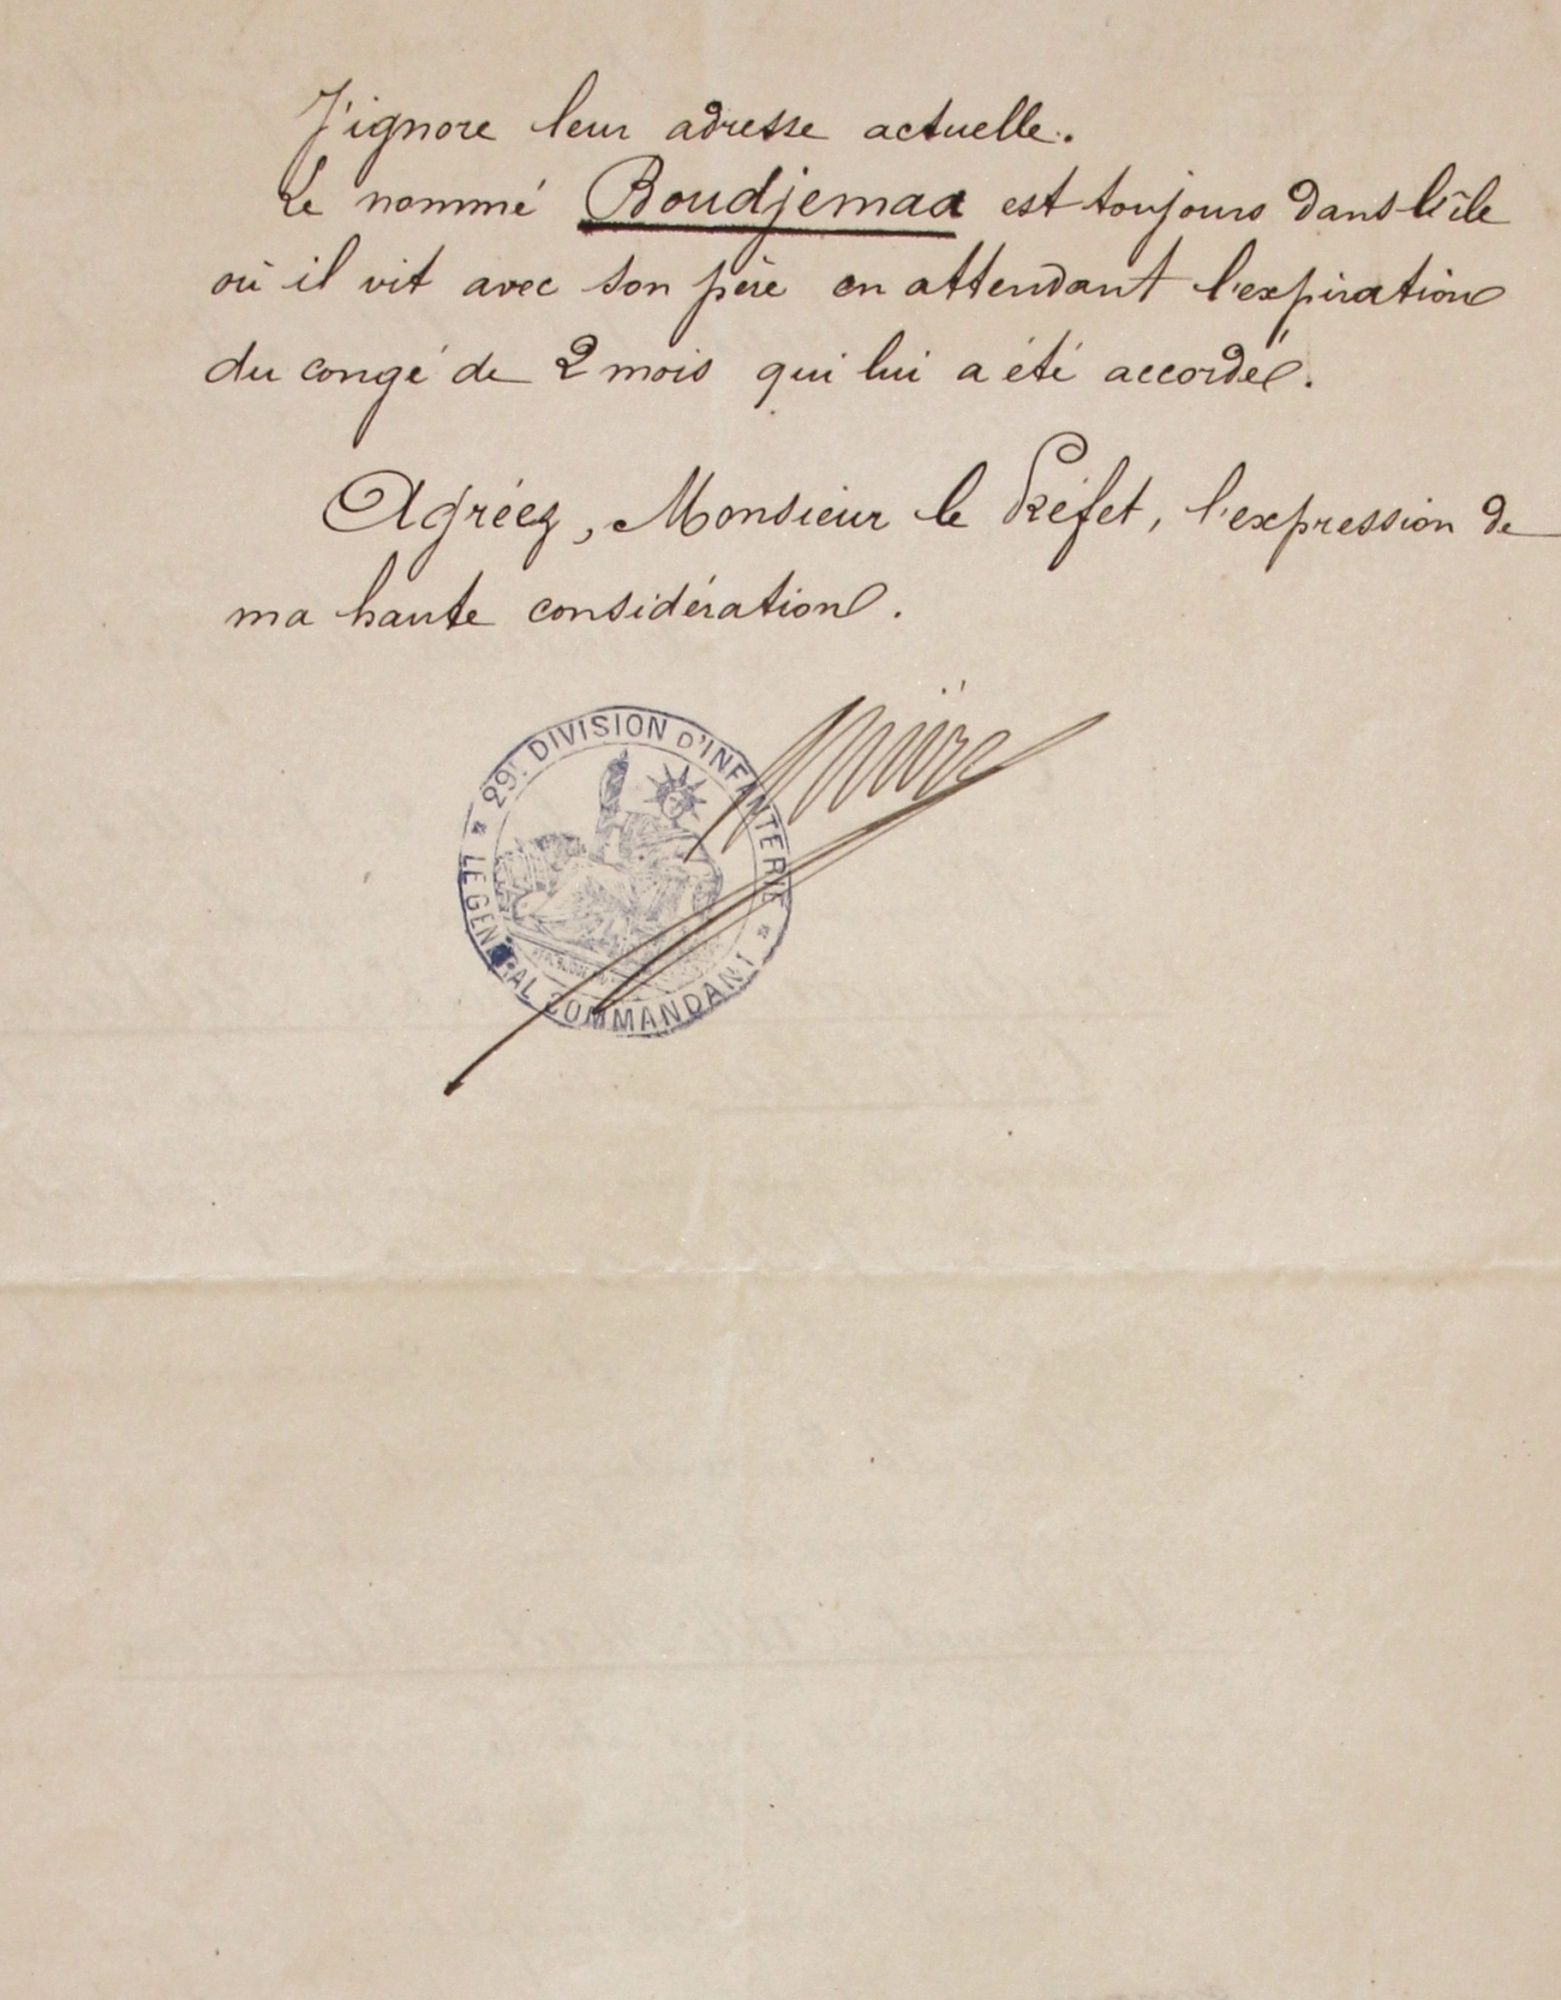 J'ignore leur adresse actuelle.
Le nommé Boudjemaa est toujours dans l'île
où il vit avec son père en attendant l'expiration
du congé de 2 mois qui lui a été accordé.
Agréez, Monsieur le Préfet, l'expression de
ma haute considération.
29e DIVISION D'INFANTERIE
LE GENERAL COMMANDANT